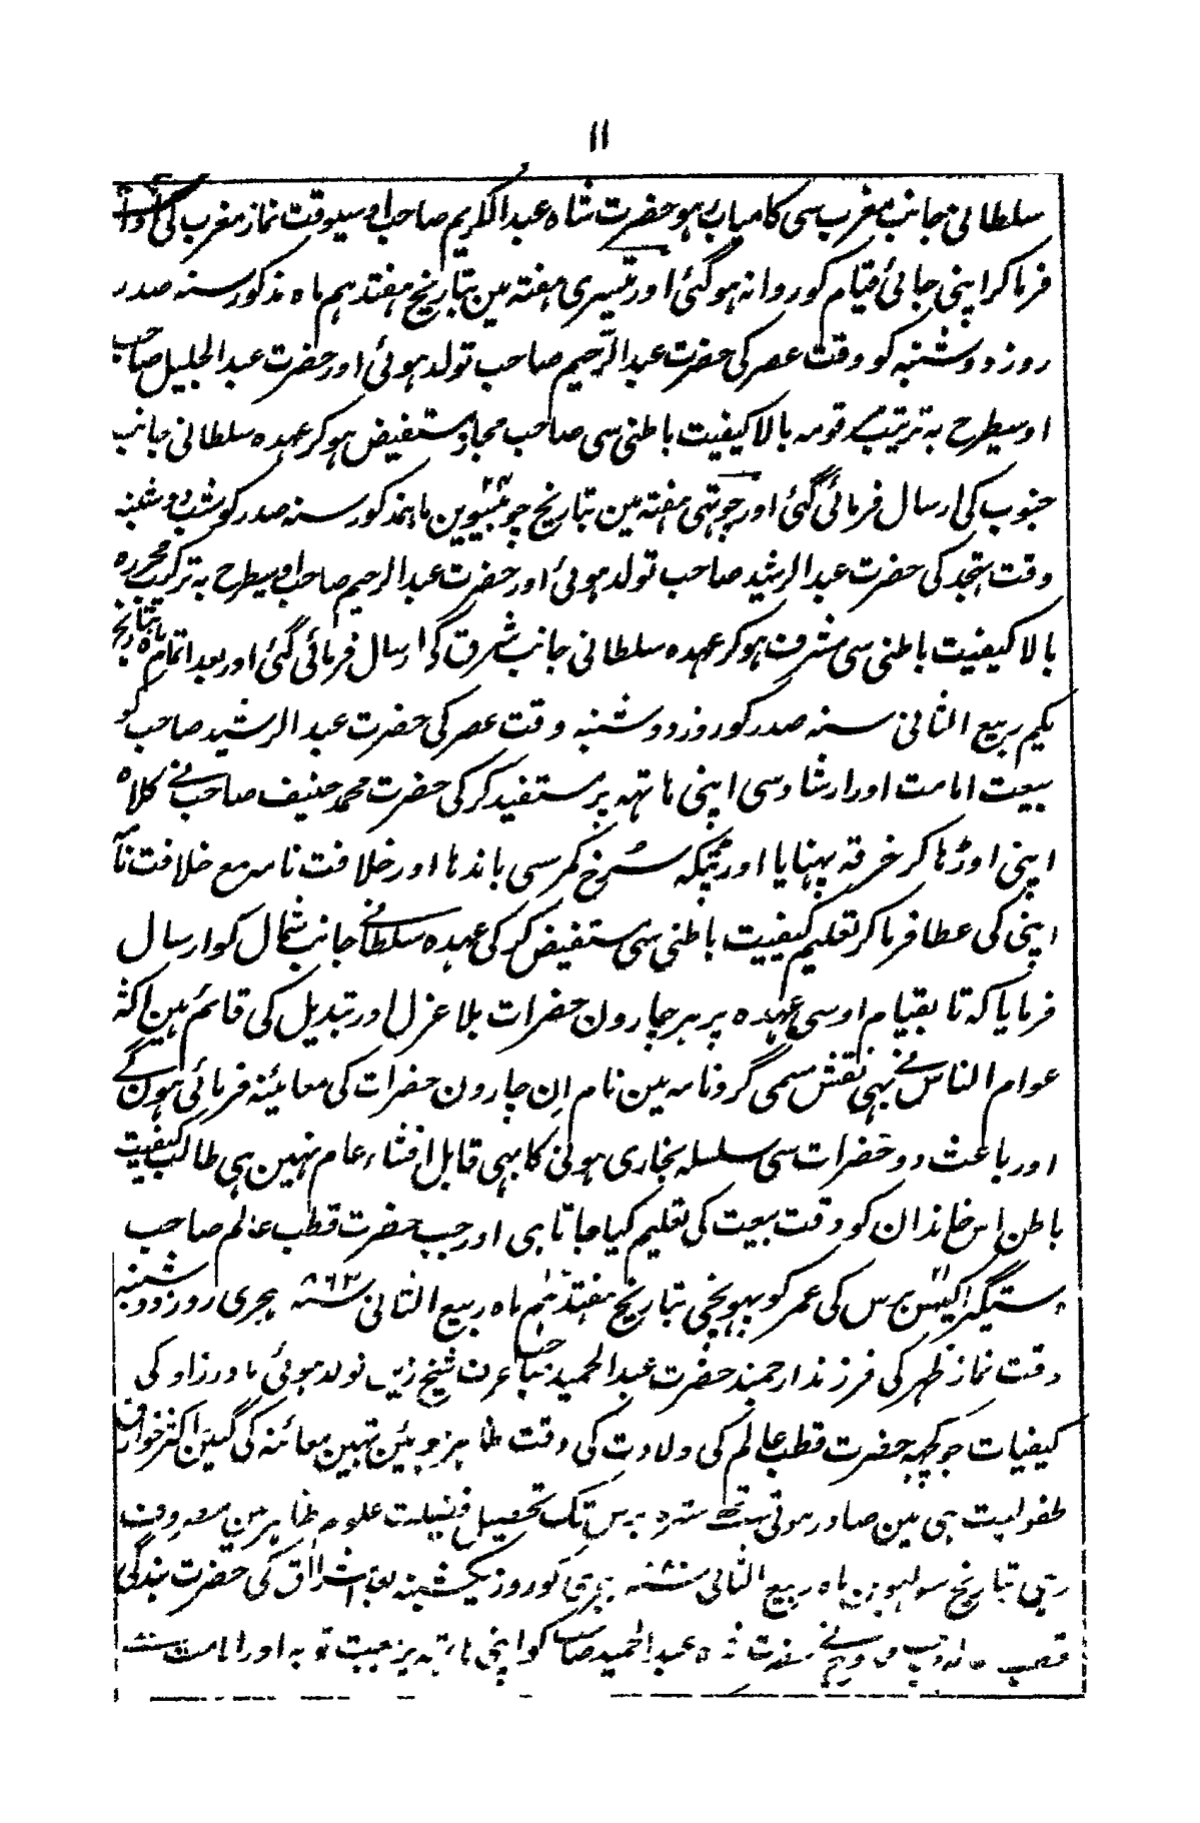 ۱۱
سلطانی جانب مغرب سی کامیاب ہو حضرت شاہ عبدالکریم صاحب اوسیوقت نماز مغرب کی ادا
فرماکر اپنی جائی قیام کو روانہ ہوگئی اور تیسری ہفتہ مین بتاریخ ہفتدہم ماہ مذکور سنہ صدر
روز دوشنبہ کو وقت عصر کی حضرت عبدالرحیم صاحب تولد ہوئی اور حضرت عبدالجلیل صاحب
اوسیطرح بہ ترتیب مرقومہ بالا کیفیت باطنی سی صاحب مجاز و مستفیض ہوکر عہدہ سلطانی جانب
جنوب کی ارسال فرمائی گئی اور چوتھی ہفتہ مین بتاریخ چوبیسوین ۲۴ ماہ مذکور سنہ صدر کو شب دوشنبہ
وقت تہجد کی حضرت عبدالرشید صاحب تولد ہوئی اور حضرت عبدالرحیم صاحب اوسیطرح بہ ترکیب محررہ
بالا کیفیت باطنی سی مشرف ہوکر عہدہ سلطانی جانب شرق کو ارسال فرمائی گئی اور بعد اتمام ماہ بتاریخ
یکم ربیع الثانی سنہ صدر کو روز دوشنبہ وقت عصر کی حضرت عبدالرشید صاحب کو
بیعت امامت اور ارشاد سی اپنی ہاتہہ پر مستفید کرکی حضرت محمد حنیف صاحب نے کلاہ
اپنی اوڑھا کر خرقہ پہنایا اور پٹکہ سرخ کمر سی باندھا اور خلافت نامہ مع خلافت نامہ
اپنی کی عطا فرماکر تعلیم کیفیت باطنی سی مستفیض کرکی عہدہ سلطانے جانب شمال کو ارسال
فرمایا کہ تا بقیام اوسی عہدہ پر ہر چارون حضرات بلا عزل اور تبدیل کی قائم ہین اکثر
عوام الناس نے بھی نقش سمی گردنامہ مین نام اِن چارون حضرات کی معائنہ فرمائی ہون گے
اور باعث دو حضرات سی سلسلہ جاری ہونی کا بھی قابل افشاء عام نہین ہی طالب کیفیت
باطن اس خاندان کو وقت بیعت کی تعلیم کیا جاتا ہی اور جب حضرت قطب عالم صاحب
دستگیر اکیس ۲۱ برس کی عمر کو پہونچی بتاریخ ہفتدہم ۱۷ ماہ ربیع الثانی ۸۶۳ سنہ ہجری روز دوشنبہ
وقت نماز ظہر کی فرزند ارجمند حضرت عبدالحمید صاحب عرف شیخ زین تولد ہوئی مادرزاد کی
کیفیات جو کچہہ حضرت قطب عالم کی ولادت کی وقت ظاہر ہوئین تہین معائنہ کی گئین اکثر خوارق
طفولیت ہی مین صادر ہوتی تہے سترہ برس تک تحصیل فضیلت علوم ظاہر مین مصروف
رہی بتاریخ سولہوین ماہ ربیع الثانی ۸۸۰ سنہ ہجری کو روز یکشنبہ بعد اشراق کی حضرت بندگی
قطب عالم نے حضرت شاہ عبدالحمید صاحب کو اپنی ہاتہہ پر بیعت توبہ اور امامت